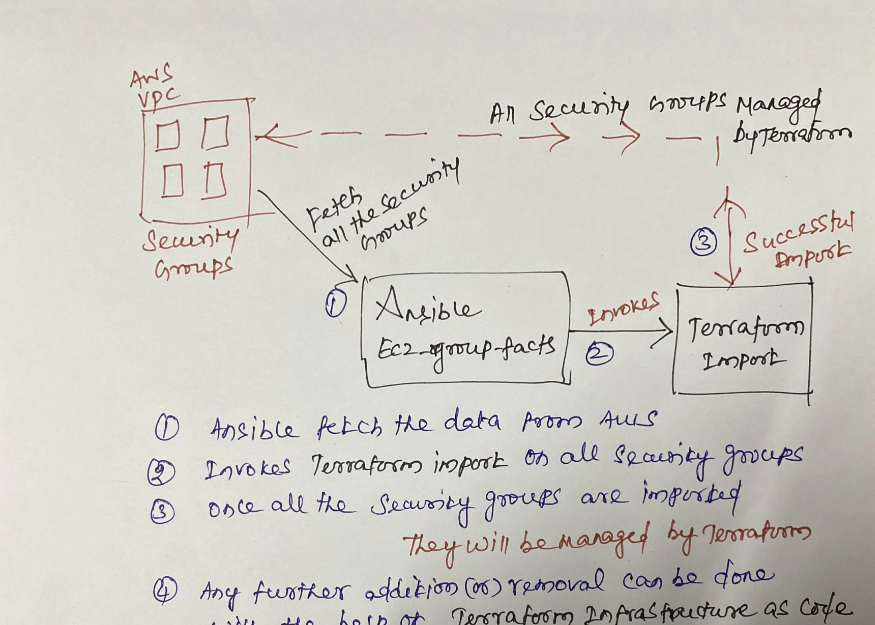 AWS
VPC
All Security Groups Managed
by Terraform
Fetch
all the security
Groups
Security
Groups
③ Successful
Import
①
Ansible
Ec2-group-facts
Invokes
②
Terraform
Import
① Ansible fetch the data from AWS
② Invokes Terraform import on all security groups
③ Once all the security groups are imported
They will be managed by Terraform
④ Any further addition (or) removal can be done
the help of Terraform Infrastructure as code